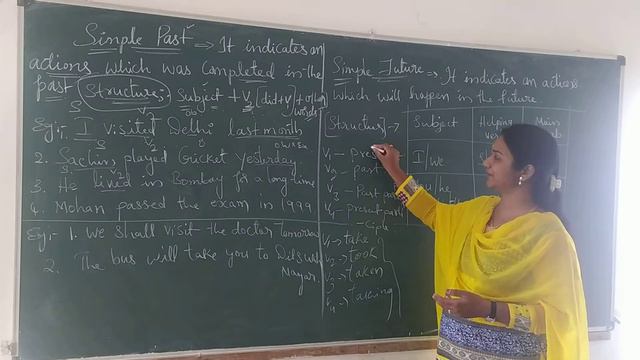 Simple Past → It indicates an
actions which was completed in the
past
Structure; Subject + V2 [did+V1] + other
words
S V2 Ob
Eg:- I visited Delhi last month
S V2 O
2. Sachin played Cricket yesterday.
3. He lived in Bombay for a long time
4. Mohan passed the exam in 1999
Eg:- 1. We shall visit the doctor
2. The bus will take you to
Nagar.
Simple Future → It indicates an actions
which will happen in the future.
[Structure] → Subject Helping Main
V1 – pres I/we
V2 – past
V3 – Past part
V4 – present parti
– ciple
V1 → take
V2 → took
V3 → taken
V4 → taking